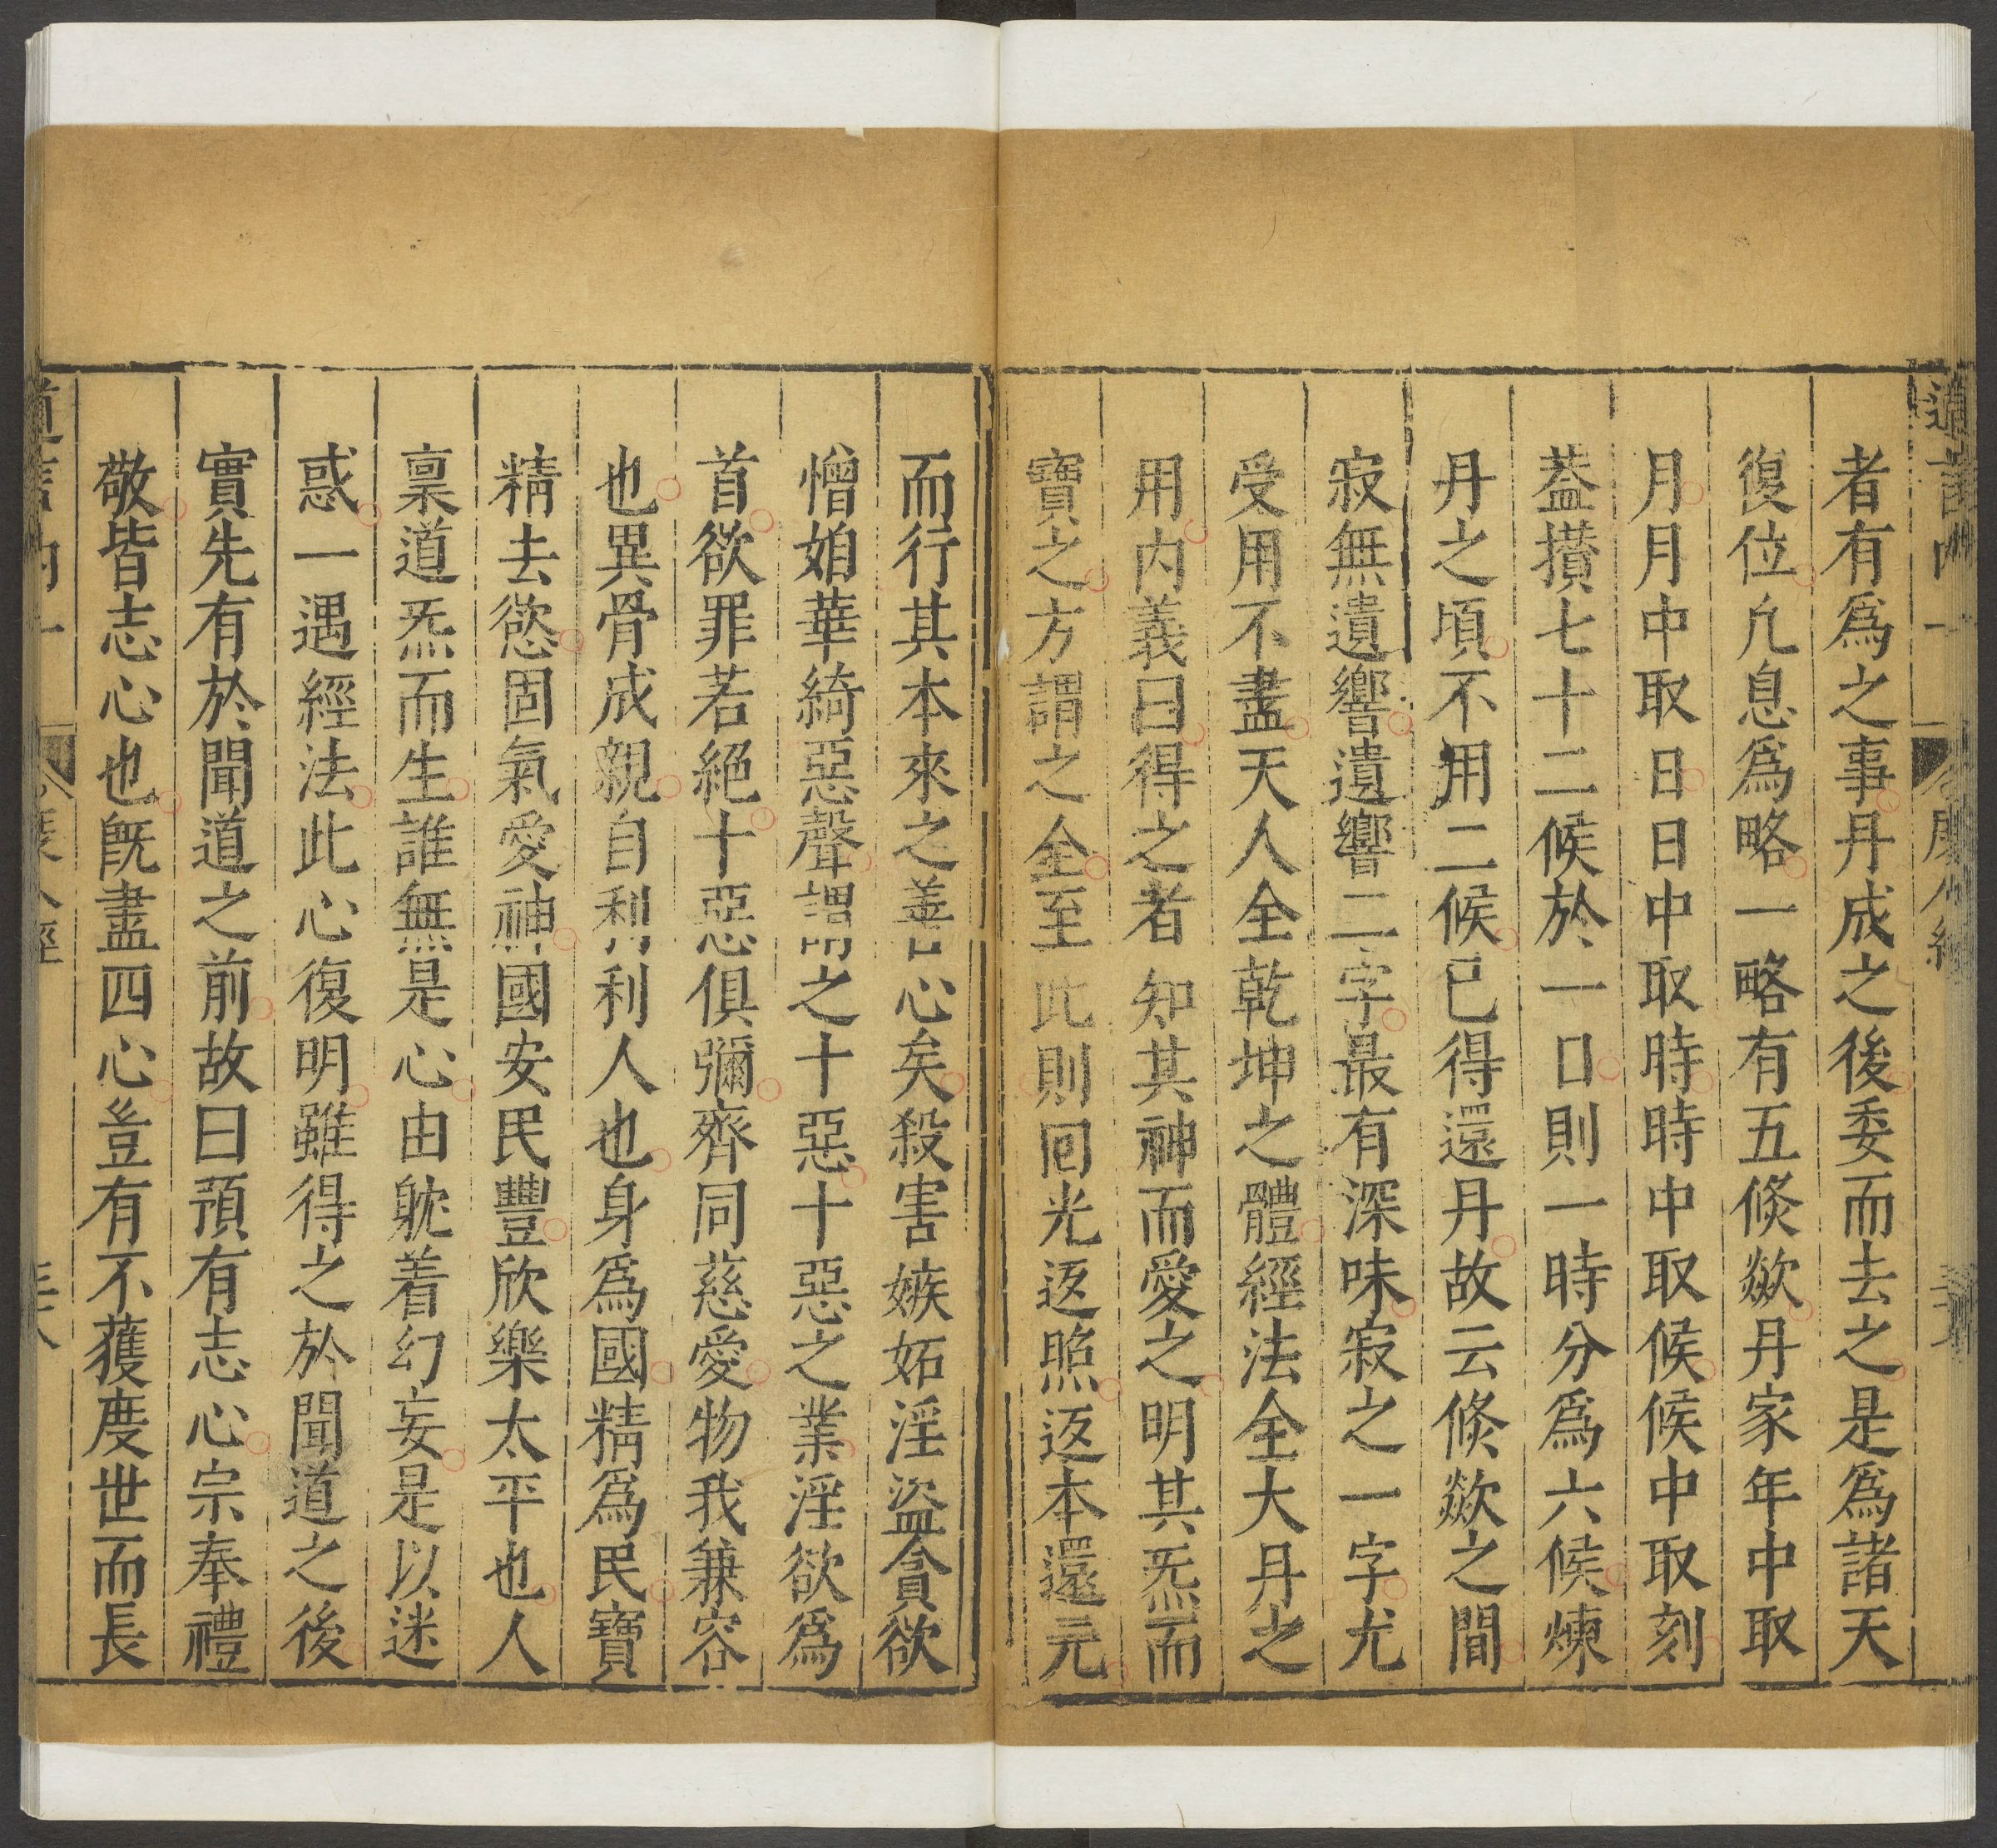 度人經
者有爲之事丹成之後委而去之是爲諸天
復位凣息爲略一略有五倏歘丹家年中取
月月中取日日中取時時中取候候中取刻
葢攅七十二候於一口則一時分爲六候煉
丹之頃不用二候已得還丹故云倏歘之間
寂無遺響遺響二字最有深味寂之一字尤
受用不盡天人全乾坤之體經法全大丹之
用内義曰得之者知其神而愛之明其炁而
寶之方謂之全至此則囘光返照返本還元
而行其本來之善心矣殺害嫉妬淫盜貪欲
憎妲華綺惡聲謂之十惡十惡之業淫欲爲
首欲罪若絕十惡俱彌齊同慈愛物我兼容
也異骨成親自利利人也身爲國精爲民寶
精去慾固氣愛神國安民豐欣樂太平也人
禀道炁而生誰無是心由躭着幻妄是以迷
惑一遇經法此心復明雖得之於聞道之後
實先有於聞道之前故曰預有志心宗奉禮
敬皆志心也旣盡四心豈有不獲度世而長